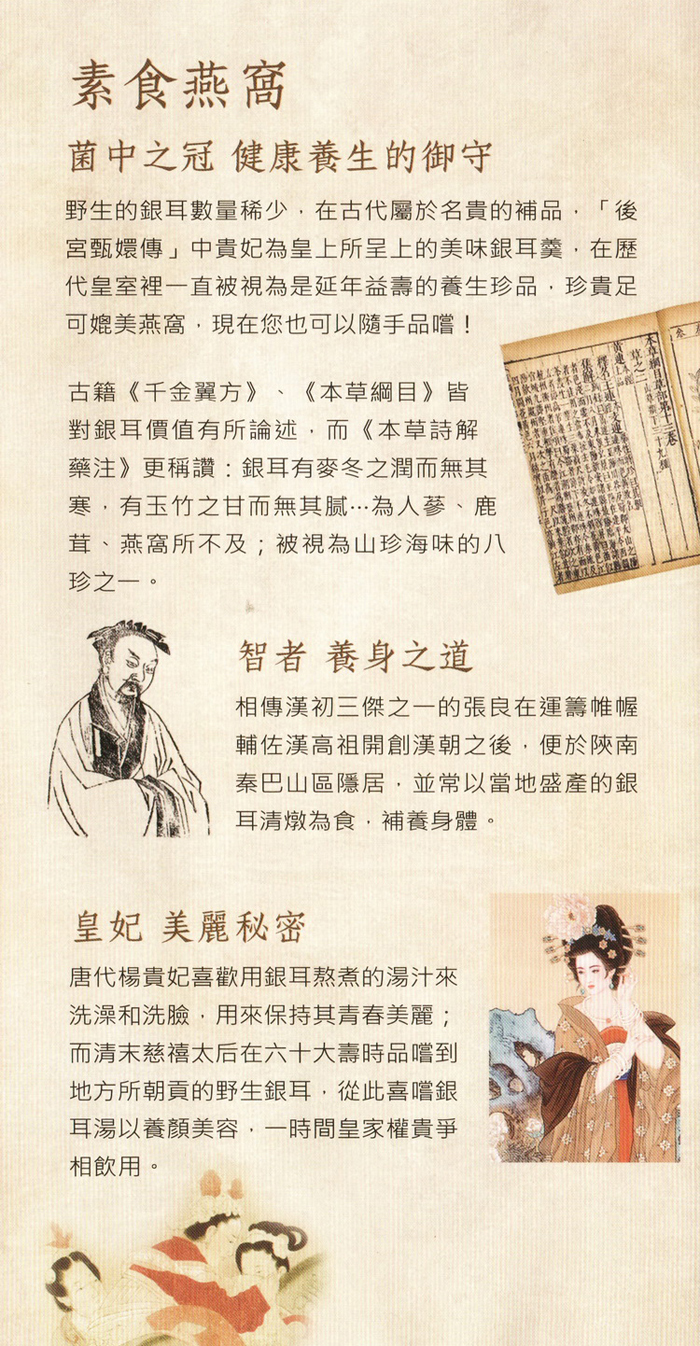 素食燕窩
菌中之冠 健康養生的御守
野生的銀耳數量稀少，在古代屬於名貴的補品，「後
宮甄嬛傳」中貴妃為皇上所呈上的美味銀耳羹，在歷
代皇室裡一直被視為是延年益壽的養生珍品，珍貴足
可媲美燕窩，現在您也可以隨手品嚐！
古籍《千金翼方》、《本草綱目》皆
對銀耳價值有所論述，而《本草詩解
藥注》更稱讚：銀耳有麥冬之潤而無其
寒，有玉竹之甘而無其膩…為人蔘、鹿
茸、燕窩所不及；被視為山珍海味的八
珍之一。
本草綱目草部第十三卷
智者 養身之道
相傳漢初三傑之一的張良在運籌帷幄
輔佐漢高祖開創漢朝之後，便於陝南
秦巴山區隱居，並常以當地盛產的銀
耳清燉為食，補養身體。
皇妃 美麗秘密
唐代楊貴妃喜歡用銀耳熬煮的湯汁來
洗澡和洗臉，用來保持其青春美麗；
而清末慈禧太后在六十大壽時品嚐到
地方所朝貢的野生銀耳，從此喜嚐銀
耳湯以養顏美容，一時間皇家權貴爭
相飲用。